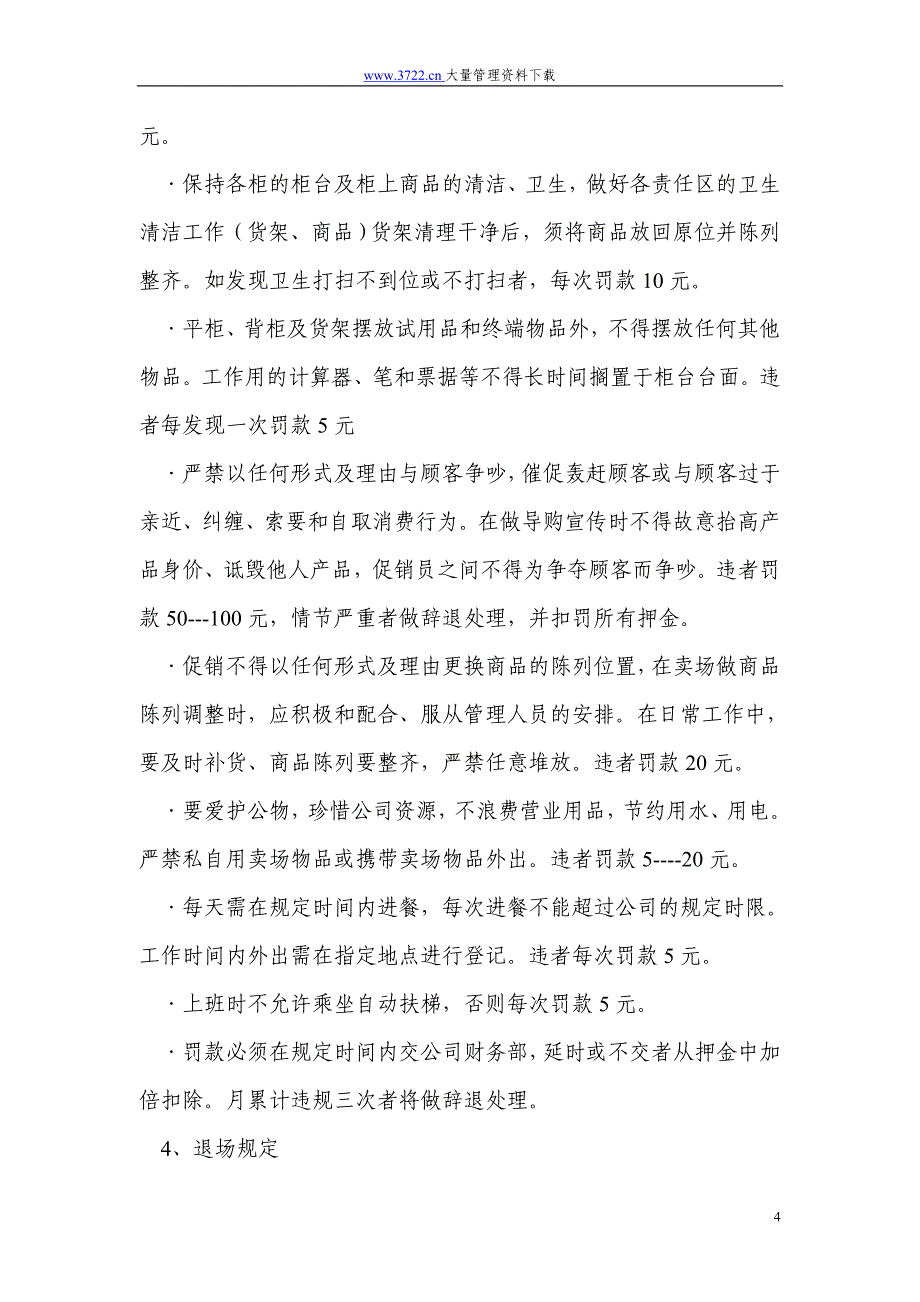 www.3722.cn 大量管理资料下载
元。
·保持各柜的柜台及柜上商品的清洁、卫生，做好各责任区的卫生
清洁工作（货架、商品）货架清理干净后，须将商品放回原位并陈列
整齐。如发现卫生打扫不到位或不打扫者，每次罚款 10 元。
·平柜、背柜及货架摆放试用品和终端物品外，不得摆放任何其他
物品。工作用的计算器、笔和票据等不得长时间搁置于柜台台面。违
者每发现一次罚款 5 元
·严禁以任何形式及理由与顾客争吵，催促轰赶顾客或与顾客过于
亲近、纠缠、索要和自取消费行为。在做导购宣传时不得故意抬高产
品身价、诋毁他人产品，促销员之间不得为争夺顾客而争吵。违者罚
款 50---100 元，情节严重者做辞退处理，并扣罚所有押金。
·促销不得以任何形式及理由更换商品的陈列位置，在卖场做商品
陈列调整时，应积极和配合、服从管理人员的安排。在日常工作中，
要及时补货、商品陈列要整齐，严禁任意堆放。违者罚款 20 元。
·要爱护公物，珍惜公司资源，不浪费营业用品，节约用水、用电。
严禁私自用卖场物品或携带卖场物品外出。违者罚款 5----20 元。
·每天需在规定时间内进餐，每次进餐不能超过公司的规定时限。
工作时间内外出需在指定地点进行登记。违者每次罚款 5 元。
·上班时不允许乘坐自动扶梯，否则每次罚款 5 元。
·罚款必须在规定时间内交公司财务部，延时或不交者从押金中加
倍扣除。月累计违规三次者将做辞退处理。
4、退场规定
4